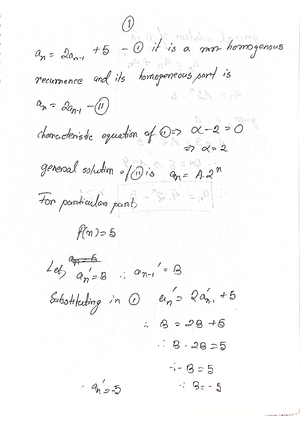 ①
aₙ = 2aₙ₋₁ + 5 - ① it is a non homogenous
recurrence and its homogeneous part is
aₙ = 2aₙ₋₁ - ⑪
characteristic equation of ① ⇒ α - 2 = 0
⇒ α = 2
general solution of ⑪ is aₙ = A.2ⁿ
For particular part,
f(n) = 5
Let, aₙ' = B ∴ aₙ₋₁' = B
Substituting in ① aₙ' = 2a'ₙ₋₁ + 5
∴ B = 2B + 5
∴ B - 2B = 5
∴ - B = 5
∴ aₙ' = -5 ∴ B = -5